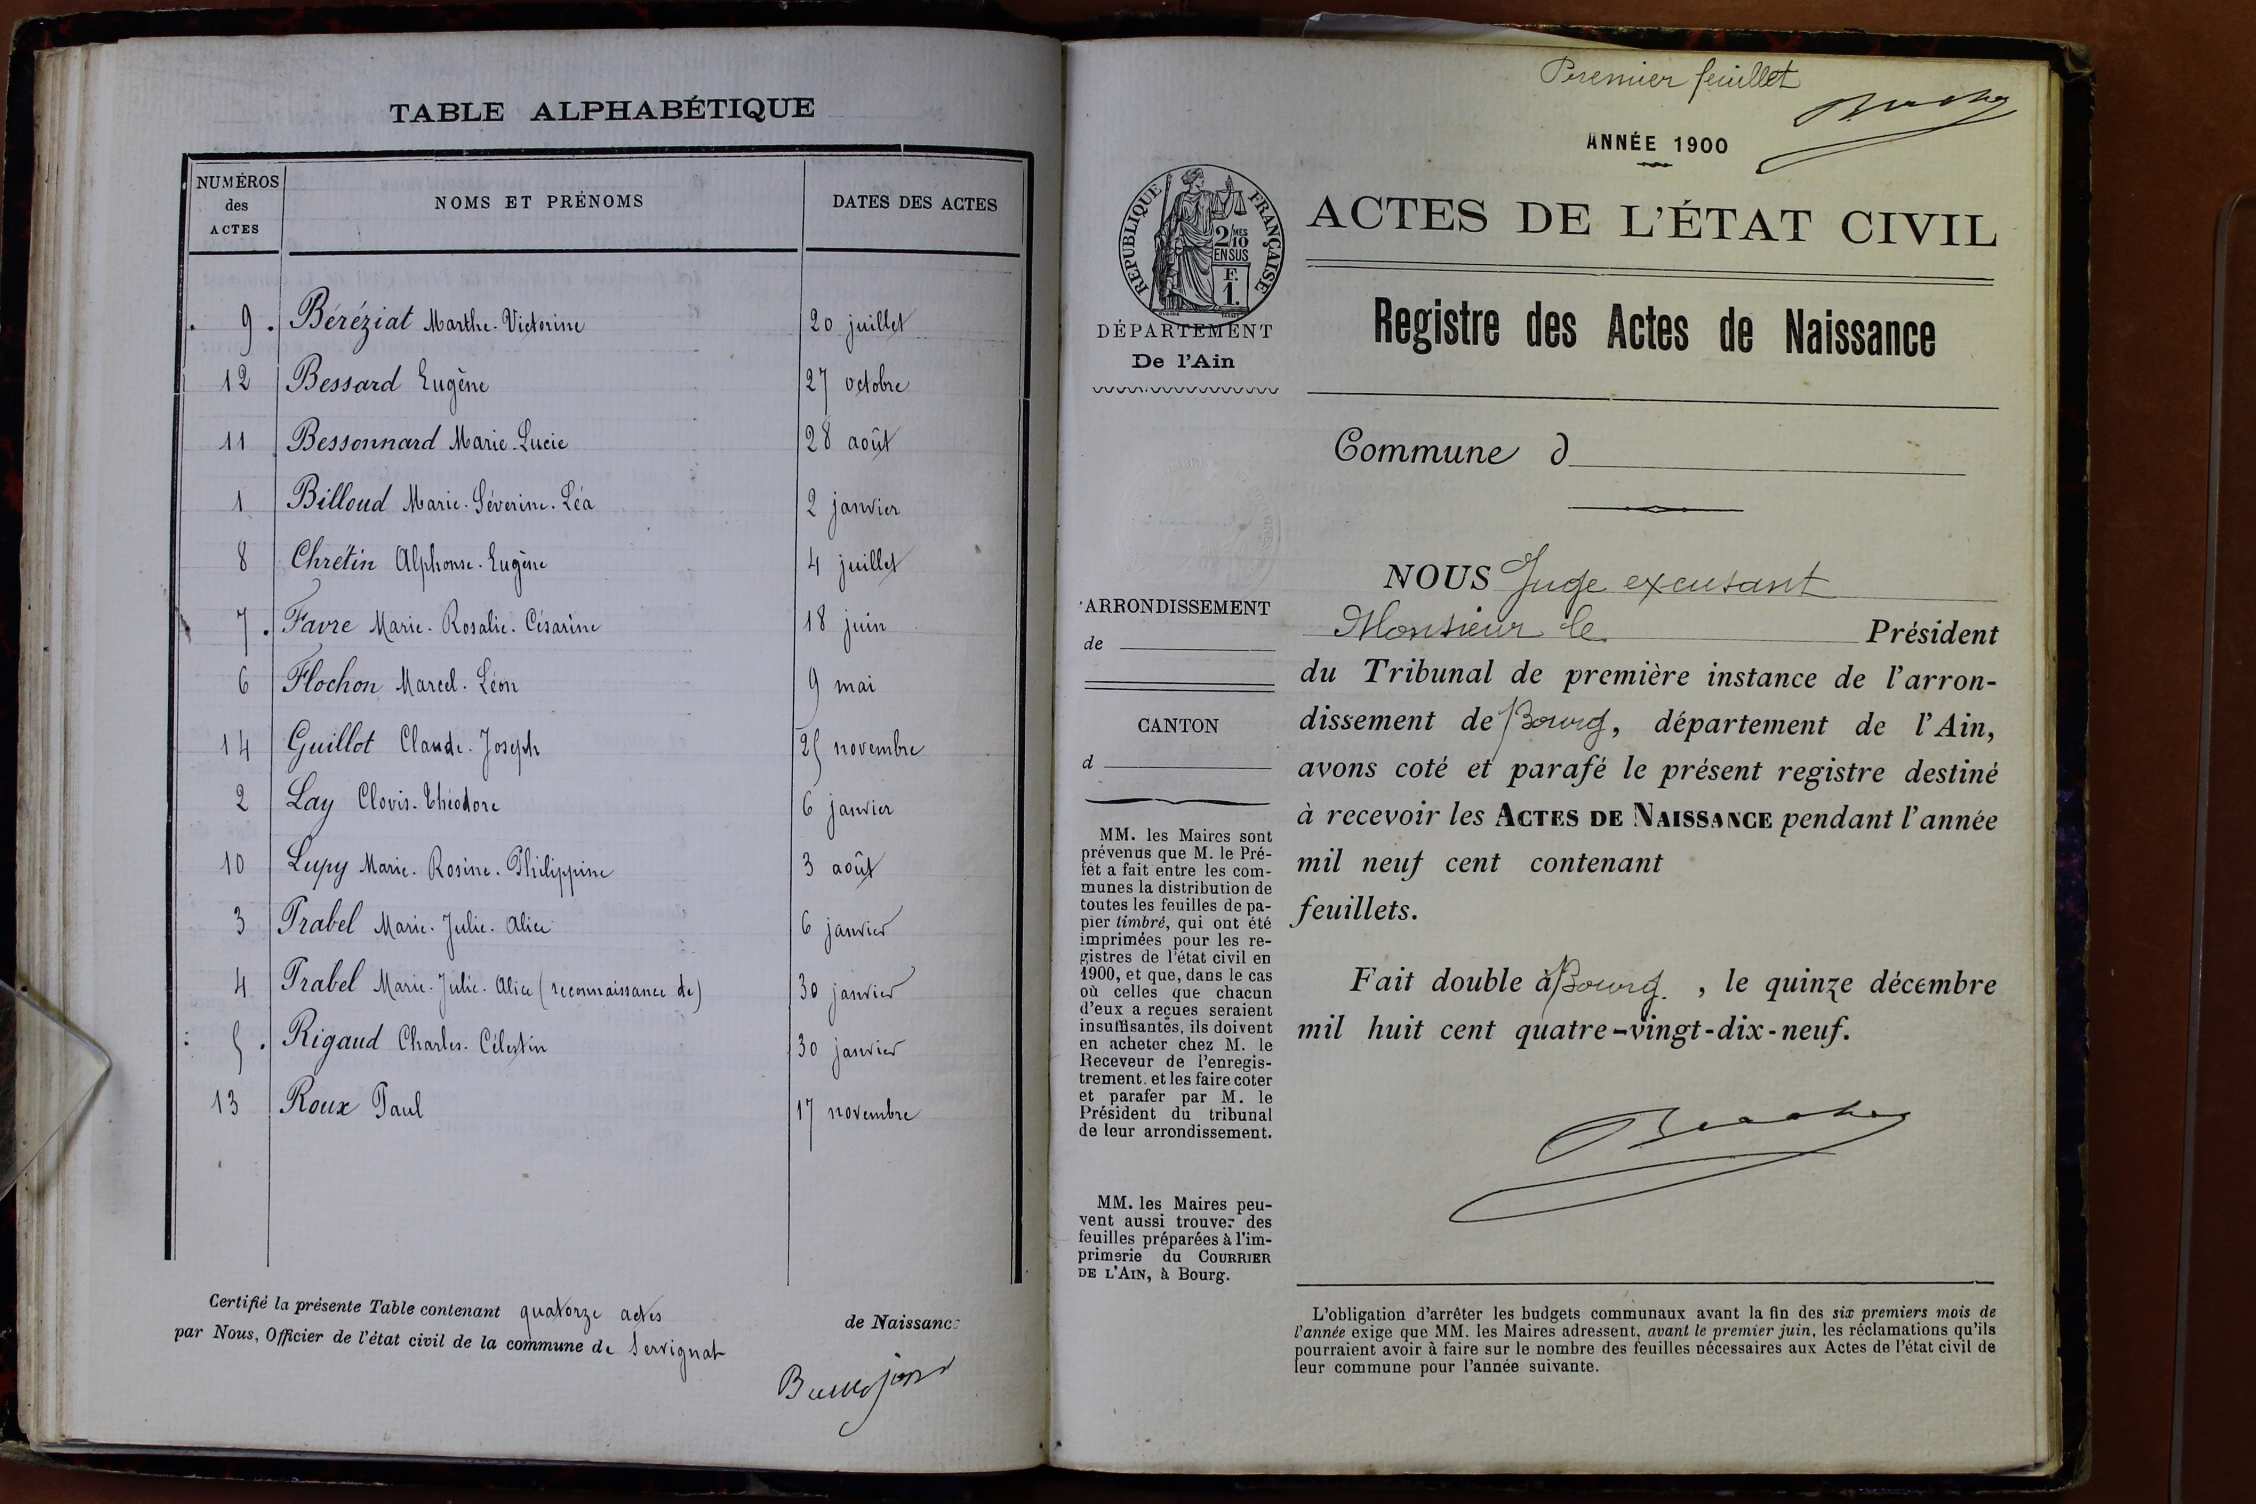 TABLE ALPHABÉTIQUE
NUMÉROS des ACTES NOMS ET PRÉNOMS DATES DES ACTES
9 Béréziat Marthe-Victorine 20 juillet
12 Bessard Eugène 27 octobre
11 Bessonnard Marie-Lucie 28 août
1 Billoud Marie-Séverine-Léa 2 janvier
8 Chretin Alphonse-Eugène 4 juillet
7 Favre Marie-Rosalie-Césarine 18 juin
6 Flochon Marcel-Léon 9 mai
14 Guillot Claude-Joseph 25 novembre
2 Lay Clovis-Théodore 6 janvier
10 Lupy Marie-Rosine-Philippine 3 août
3 Prabel Marie-Julie-Alice 6 janvier
4 Prabel Marie-Julie-Alice (reconnaissance de) 30 janvier
5 Rigaud Charles-Célestin 30 janvier
13 Roux Paul 17 novembre
Certifié la présente Table contenant quatorze actes de Naissance
par Nous, Officier de l'état civil de la commune de Servignat
Premier feuillet
ANNÉE 1900
RÉPUBLIQUE FRANÇAISE
2/10 MES
EN SUS
F.
1.
DÉPARTEMENT
De l'Ain
ACTES DE L'ÉTAT CIVIL
Registre des Actes de Naissance
Commune d
ARRONDISSEMENT
de
CANTON
d
MM. les Maires sont
prévenus que M. le Pré-
fet a fait entre les com-
munes la distribution de
toutes les feuilles de pa-
pier timbré, qui ont été
imprimées pour les re-
gistres de l'état civil en
1900, et que, dans le cas
où celles que chacun
d'eux a reçues seraient
insuffisantes, ils doivent
en acheter chez M. le
Receveur de l'enregis-
trement. et les faire coter
et parafer par M. le
Président du tribunal
de leur arrondissement.
MM. les Maires peu-
vent aussi trouver des
feuilles préparées à l'im-
primerie du COURRIER
DE L'AIN, à Bourg.
NOUS Juge excusant
Monsieur le Président
du Tribunal de première instance de l'arron-
dissement de Bourg, département de l'Ain,
avons coté et parafé le présent registre destiné
à recevoir les ACTES DE NAISSANCE pendant l'année
mil neuf cent contenant
feuillets.
Fait double à Bourg. , le quinze décembre
mil huit cent quatre-vingt-dix-neuf.
L'obligation d'arrêter les budgets communaux avant la fin des six premiers mois de
l'année exige que MM. les Maires adressent, avant le premier juin, les réclamations qu'ils
pourraient avoir à faire sur le nombre des feuilles nécessaires aux Actes de l'état civil de
leur commune pour l'année suivante.